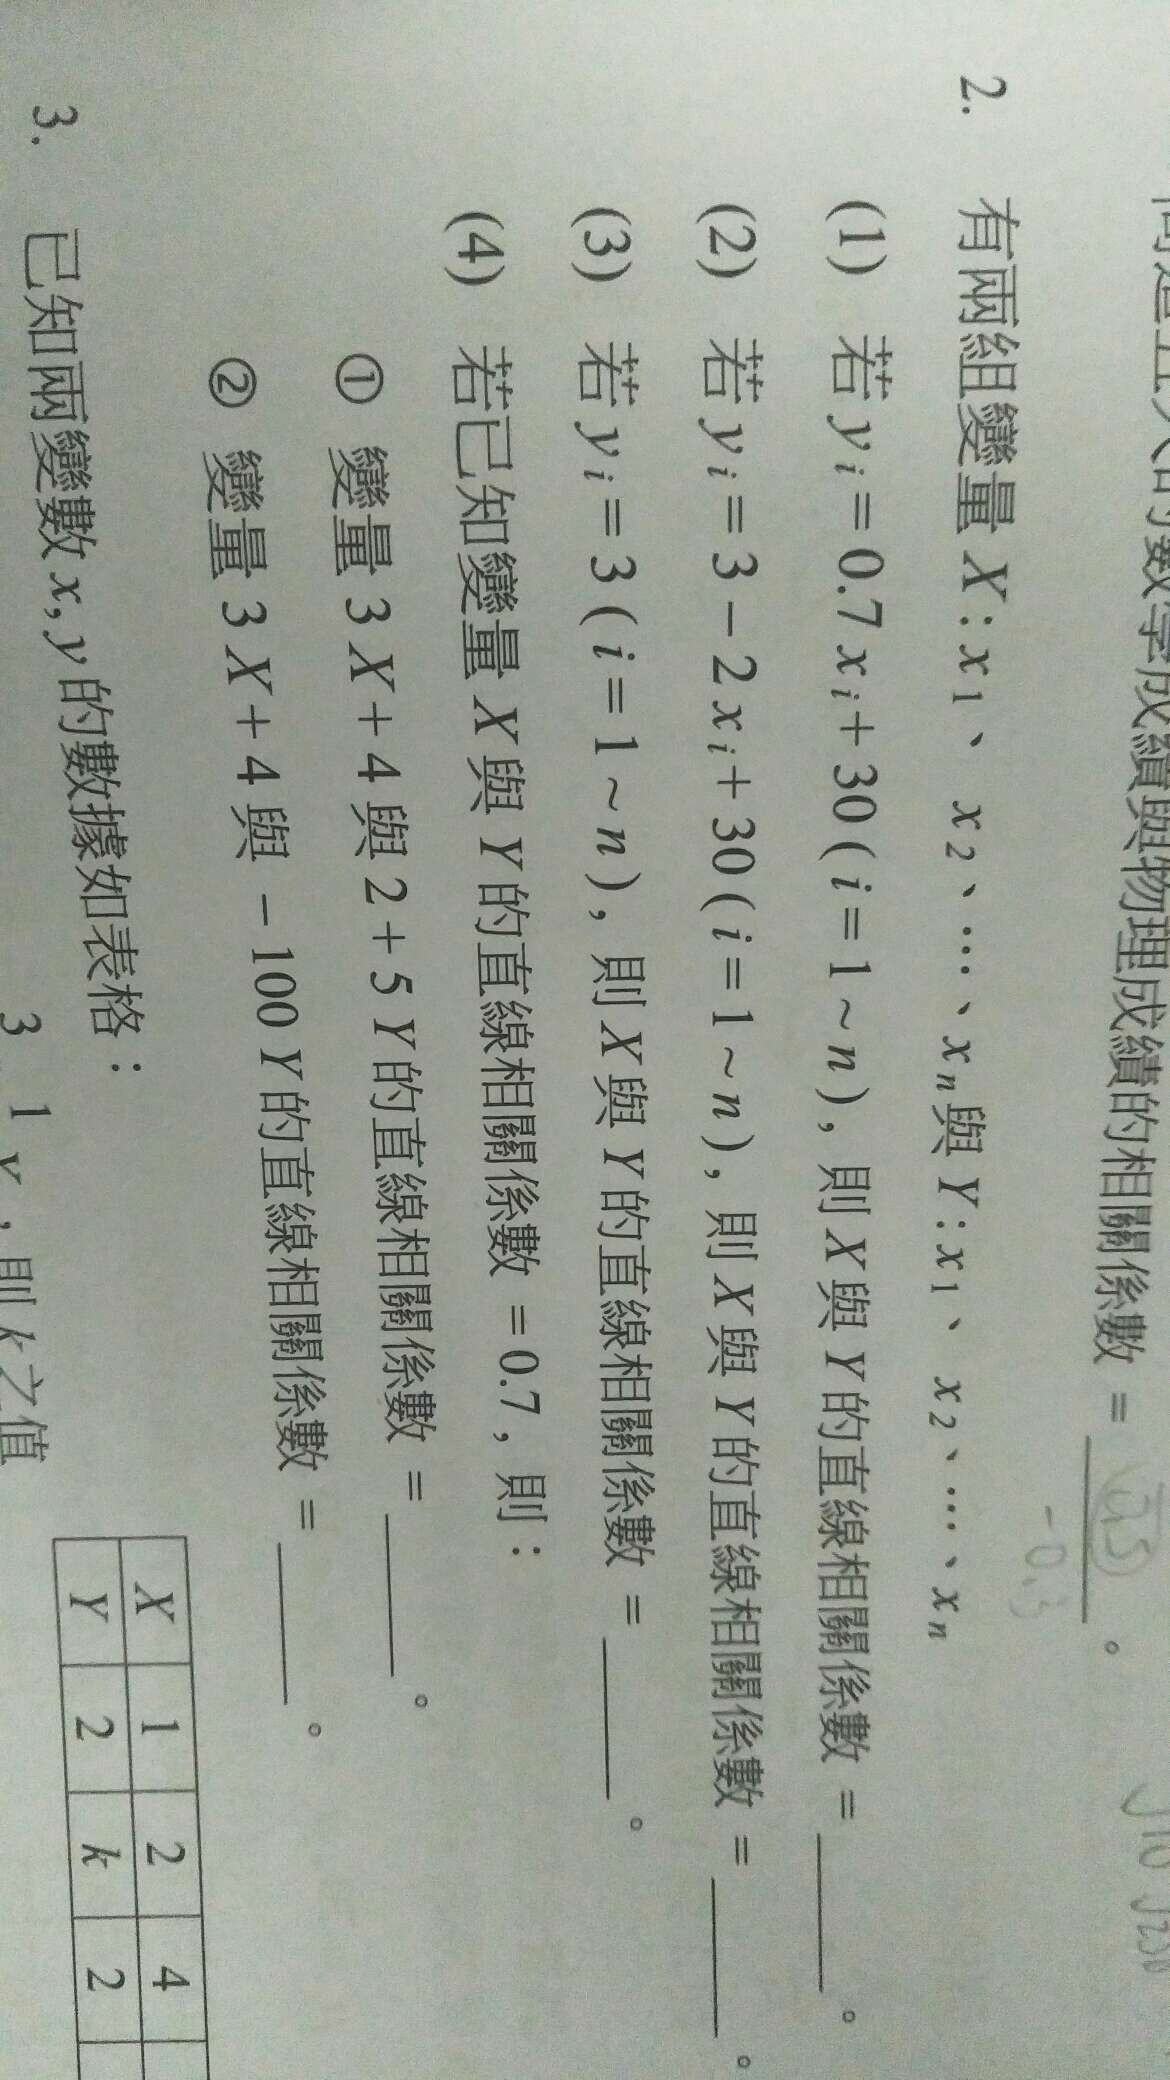 的數學成績與物理成績的相關係數 =
-0.3
。
2. 有兩組變量 X : x1、x2、…、xn與 Y : x1、x2、…、xn
(1) 若 yi = 0.7 xi + 30 ( i = 1 ~ n ) , 則 X 與 Y 的直線相關係數 = ______。
(2) 若 yi = 3 - 2 xi + 30 ( i = 1 ~ n ) , 則 X 與 Y 的直線相關係數 = ______。
(3) 若 yi = 3 ( i = 1 ~ n ) , 則 X 與 Y 的直線相關係數 = ______。
(4) 若已知變量 X 與 Y 的直線相關係數 = 0.7 , 則 :
① 變量 3 X + 4 與 2 + 5 Y 的直線相關係數 = ______。
② 變量 3 X + 4 與 - 100 Y 的直線相關係數 = ______。
3. 已知兩變數 x, y 的數據如表格 :
X 1 2 4
Y 2 k 2
3 1
, 則 k 之值